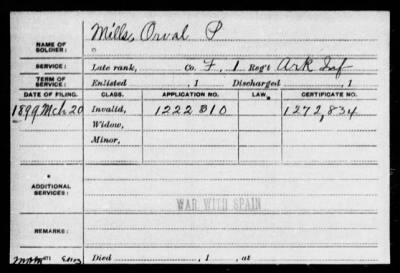 Miller, Orval P
NAME OF
SOLDIER:
SERVICE: Late rank, Co. F, 1 Reg't Ark Inf
TERM OF
SERVICE: Enlisted , 1 Discharged , 1
DATE OF FILING. CLASS. APPLICATION NO. LAW. CERTIFICATE NO.
1899 Mch 20 Invalid, 1222310 1272,834
Widow,
Minor,
ADDITIONAL
SERVICES:
WAR WITH SPAIN
REMARKS:
Died , 1 , at